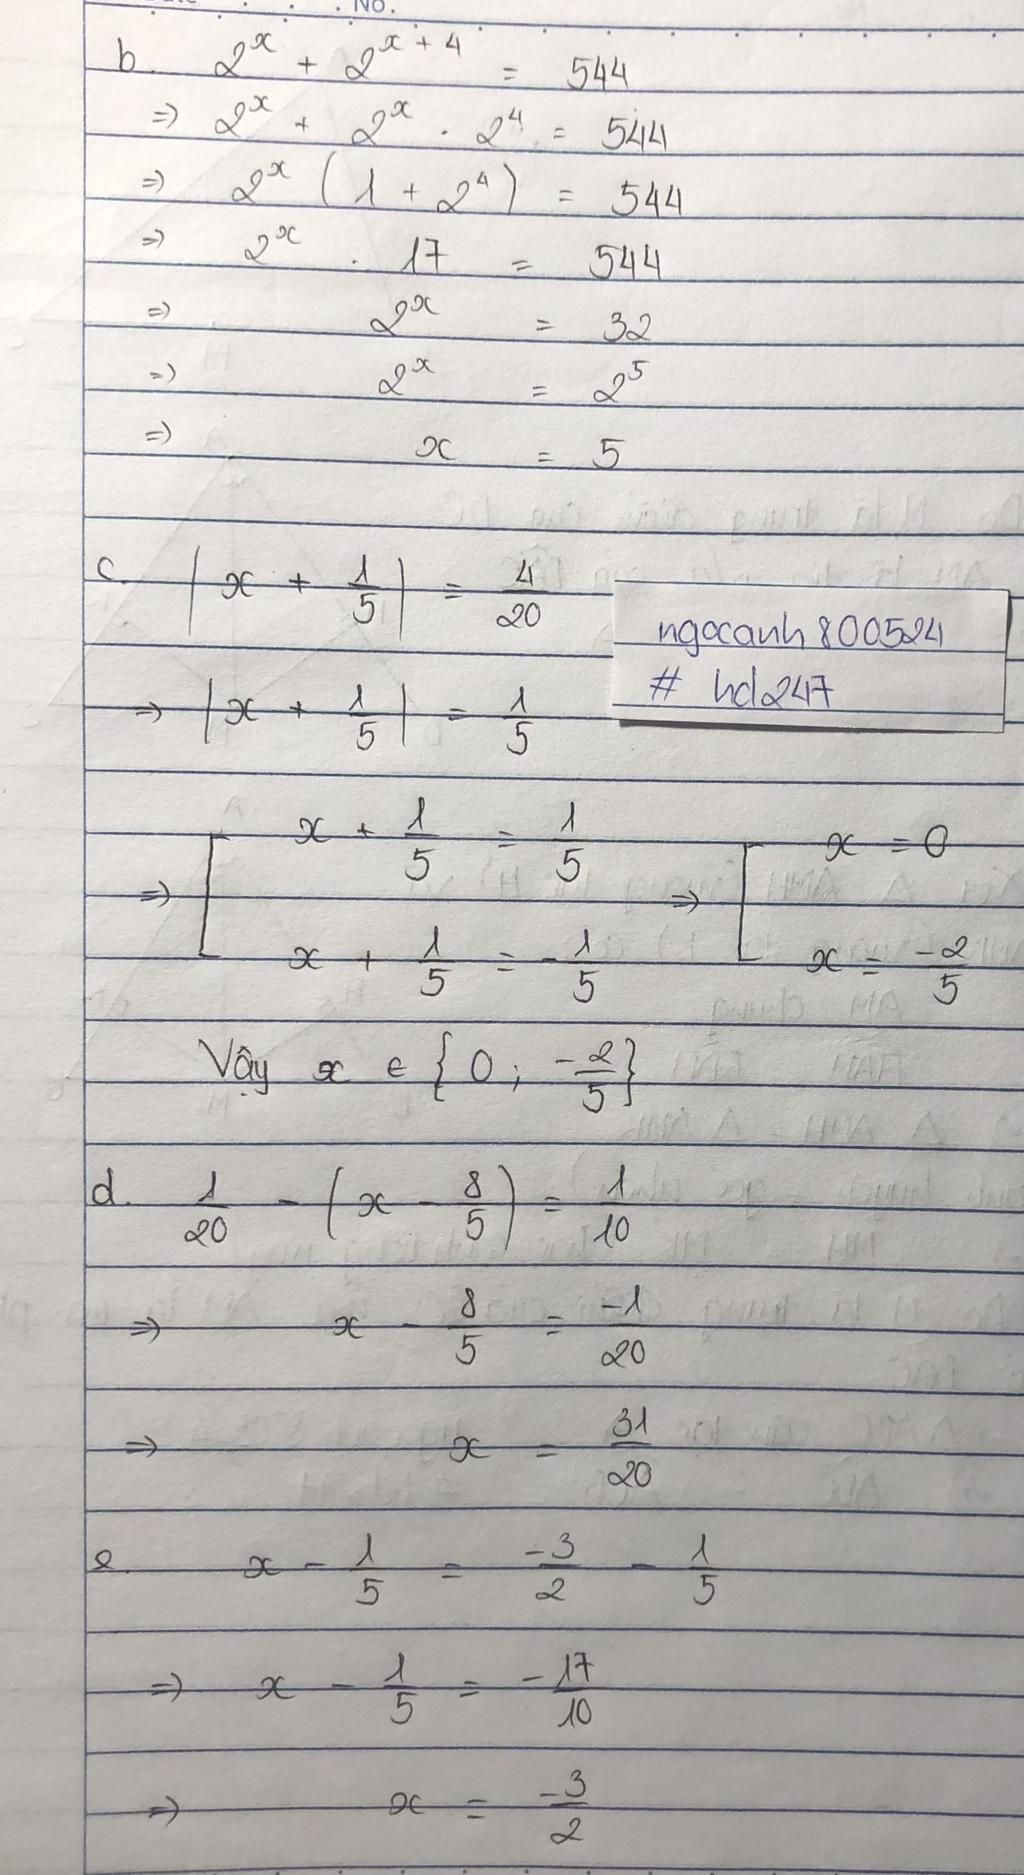 No.
b. 2^x + 2^{x + 4} = 544
=> 2^x + 2^x . 2^4 = 544
=> 2^x (1 + 2^4) = 544
=> 2^x . 17 = 544
=> 2^x = 32
=> 2^x = 2^5
=> x = 5
c. |x + 1/5| = 4/20
ngocanh800524
# hd247
=> |x + 1/5| = 1/5
=> [ x + 1/5 = 1/5 => [ x = 0
x + 1/5 = -1/5 x = -2/5
Vậy x ∈ {0 ; -2/5}
d. 1/20 - (x - 8/5) = 1/10
=> x - 8/5 = -1/20
=> x = 31/20
e. x - 1/5 = -3/2 - 1/5
=> x - 1/5 = -17/10
=> x = -3/2